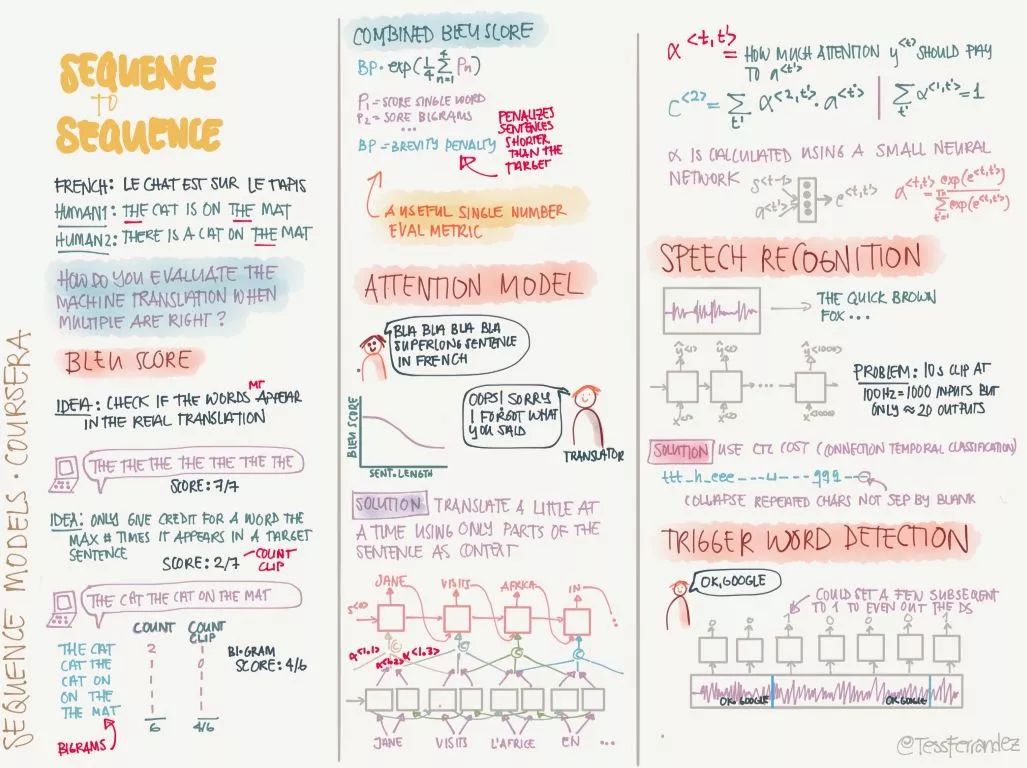 SEQUENCE MODELS · COURSERA
SEQUENCE
TO
SEQUENCE
FRENCH: LE CHAT EST SUR LE TAPIS
HUMAN1: THE CAT IS ON THE MAT
HUMAN2: THERE IS A CAT ON THE MAT
HOW DO YOU EVALUATE THE
MACHINE TRANSLATION WHEN
MULTIPLE ARE RIGHT?
BLEU SCORE
MT
IDEA: CHECK IF THE WORDS APPEAR
IN THE REAL TRANSLATION
THE THE THE THE THE THE THE
SCORE: 7/7
IDEA: ONLY GIVE CREDIT FOR A WORD THE
MAX # TIMES IT APPEARS IN A TARGET
SENTENCE
SCORE: 2/7
COUNT
CLIP
THE CAT THE CAT ON THE MAT
COUNT COUNT CLIP
THE CAT 2 1
CAT THE 1 0
CAT ON 1 1
ON THE 1 1
THE MAT 1 1
6 4/6
BI-GRAM
SCORE: 4/6
BIGRAMS
COMBINED BLEU SCORE
BP · exp(1/4 4∑n=1 Pn)
P1 = SCORE SINGLE WORD
P2 = SORE BIGRAMS
...
BP = BREVITY PENALTY
PENALIZES
SENTENCES
SHORTER
THAN THE
TARGET
A USEFUL SINGLE NUMBER
EVAL METRIC
ATTENTION MODEL
BLA BLA BLA BLA
SUPERLONG SENTENCE
IN FRENCH
OOPS! SORRY
I FORGOT WHAT
YOU SAID
TRANSLATOR
BLEU SCORE
SENT. LENGTH
SOLUTION TRANSLATE A LITTLE AT
A TIME USING ONLY PARTS OF THE
SENTENCE AS CONTEXT
JANE VISITS AFRICA IN
S<0> ...
C C C C
α<1,1> α<1,2> α<1,3>
JANE VISITS L'AFRICE EN ...
α<t,t'> = HOW MUCH ATTENTION y<t> SHOULD PAY
TO a<t'>
C<2> = ∑t' α<2,t'> · a<t'> | ∑t' α<1,t'> = 1
α IS CALCULATED USING A SMALL NEURAL
NETWORK
S<t-1>
a<t'>
e<t,t'>
a<t,t'> = exp(e<t,t'>) / Tx∑t'=1 exp(e<t,t'>)
SPEECH RECOGNITION
THE QUICK BROWN
FOX ...
ŷ<1> ŷ<2> ŷ<1000>
...
x<1> x<2> x<1000>
PROBLEM: 10s CLIP AT
100Hz = 1000 INPUTS BUT
ONLY ≈ 20 OUTPUTS
SOLUTION USE CTC COST (CONNECTION TEMPORAL CLASSIFICATION)
ttt_h_eee---⊔---qqq--
COLLAPSE REPEATED CHARS NOT SEP BY BLANK
TRIGGER WORD DETECTION
OK, GOOGLE
COULD SET A FEW SUBSEQENT
TO 1 TO EVEN OUT THE DS
0 0 1 0 0 0 1
OK GOOGLE OK GOOGLE
@TessFerrandez